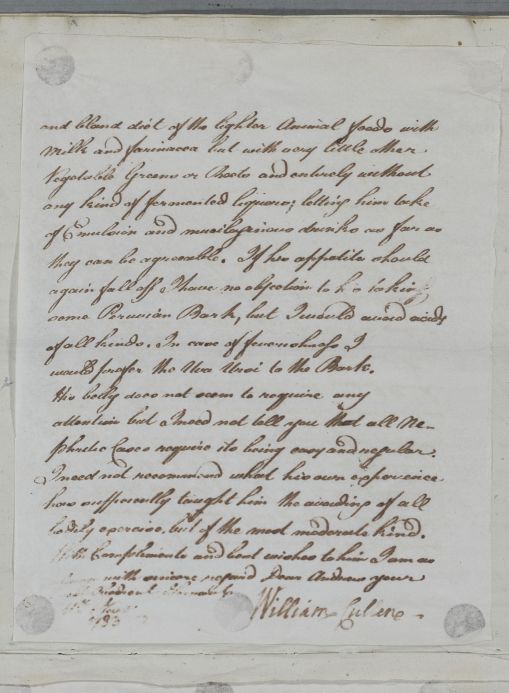 and bland diet of the lighter Animal foods with
Milk and farinacea but with very little other
Vegetable Greens or Roots and entirely without
any kind of fermented liquors; letting him take
of Emulsion and mucilaginous drinks as far as
they can be agreeable. If his appetite should
again fall off I have no objection to his taking
some Peruvian Bark, but I would avoid acids
of all kinds. In case of feverishness I
would prefer the Uva Ursi to the Bark.
His belly does not seem to require any
attention but I need not tell you that all Ne-
phritic Cases require its being easy and regular.
I need not recommend what his own experience
has sufficiently taught him the avoiding of all
bodily exercise, but of the most moderate kind.
With Compliments and best wishes to him I am as
with sincere regard Dear Andrew your
William Cullen